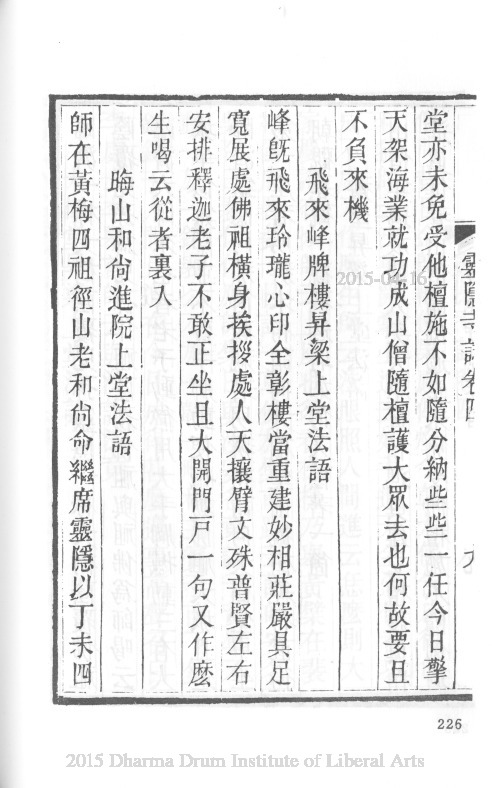 靈隱寺誌卷四
九
堂亦未免受他檀施不如隨分納些些一任今日擎
天架海業就功成山僧隨檀護大眾去也何故要且
不負來機
飛來峰牌樓昇梁上堂法語
峰旣飛來玲瓏心印全彰樓當重建妙相莊嚴具足
寬展處佛祖橫身挨拶處人天攘臂文殊普賢左右
安排釋迦老子不敢正坐且大開門戶一句又作麽
生喝云從者裏入
晦山和尙進院上堂法語
師在黃梅四祖徑山老和尙命繼席靈隱以丁未四
226
2015-04-16
2015 Dharma Drum Institute of Liberal Arts